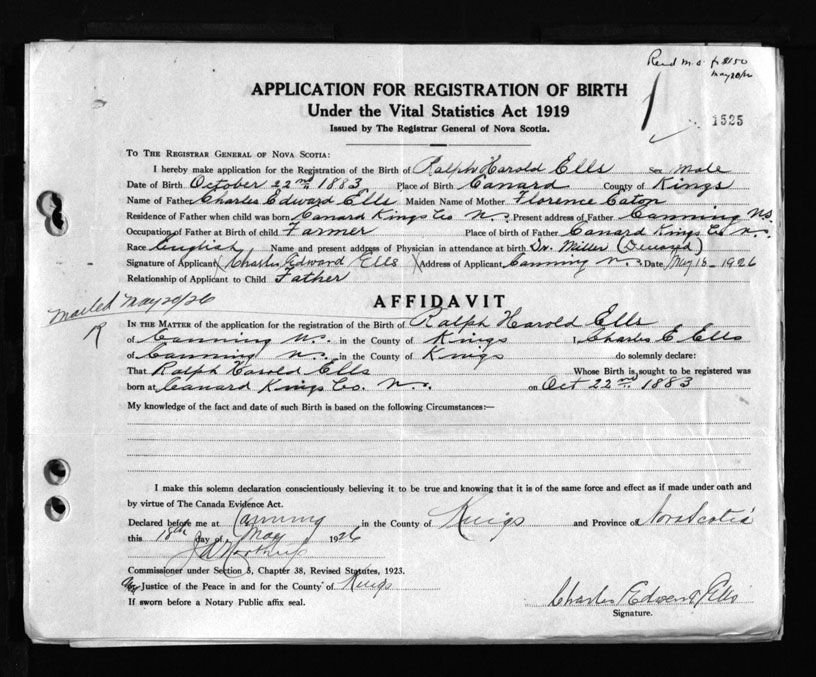 Recd m.o. for $1.50
May 20/26
APPLICATION FOR REGISTRATION OF BIRTH
Under the Vital Statistics Act 1919
Issued by The Registrar General of Nova Scotia.
1525
To The Registrar General of Nova Scotia:
I hereby make application for the Registration of the Birth of Ralph Harold Ells Sex Male
Date of Birth October 22nd 1883 Place of Birth Canard County of Kings
Name of Father Charles Edward Ells Maiden Name of Mother Florence Eaton
Residence of Father when child was born Canard Kings Co N.S. Present address of Father Canning N.S.
Occupation of Father at Birth of child Farmer Place of birth of Father Canard Kings Co N.S.
Race English Name and present address of Physician in attendance at birth Dr. Miller
Signature of Applicant Charles Edward Ells Address of Applicant Canning N.S. Date May 18 1926
Relationship of Applicant to Child Father
Mailed May 20/26
R
AFFIDAVIT
In the Matter of the application for the registration of the Birth of Ralph Harold Ells
of Canning N.S. in the County of Kings I, Charles E Ells
of Canning N.S. in the County of Kings do solemnly declare:
That Ralph Harold Ells Whose Birth is sought to be registered was
born at Canard Kings Co. N.S. on Oct 22nd 1883
My knowledge of the fact and date of such Birth is based on the following Circumstances:—
I make this solemn declaration conscientiously believing it to be true and knowing that it is of the same force and effect as if made under oath and
by virtue of The Canada Evidence Act.
Declared before me at Canning in the County of Kings and Province of Nova Scotia
this 18th day of May 1926
Commissioner under Section 5, Chapter 38, Revised Statutes, 1923.
Justice of the Peace in and for the County of Kings
If sworn before a Notary Public affix seal.
Charles Edward Ells
Signature.